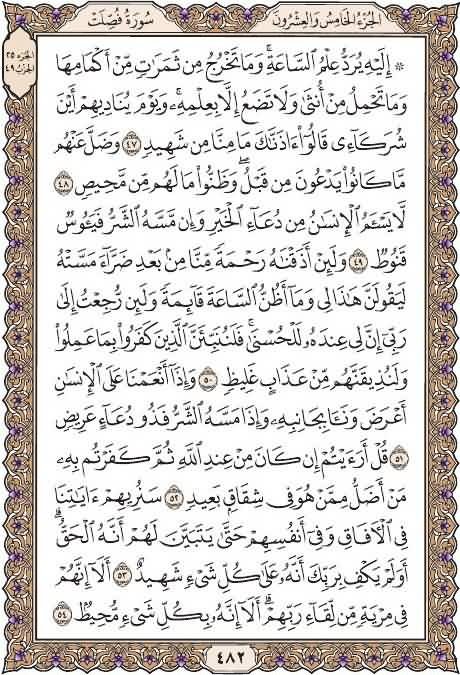 سُورَةُ فُصِّلَتْ الجُزْءُ الخَامِسُ وَالعِشْرُونَ
الجزء ٢٥
الحزب ٤٩
۞ إِلَيْهِ يُرَدُّ عِلْمُ ٱلسَّاعَةِۚ وَمَا تَخْرُجُ مِن ثَمَرَٰتٍ مِّنْ أَكْمَامِهَا
وَمَا تَحْمِلُ مِنْ أُنثَىٰ وَلَا تَضَعُ إِلَّا بِعِلْمِهِۦۚ وَيَوْمَ يُنَادِيهِمْ أَيْنَ
شُرَكَآءِى قَالُوٓا۟ ءَاذَنَّٰكَ مَا مِنَّا مِن شَهِيدٍ ٤٧ وَضَلَّ عَنْهُم
مَّا كَانُوا۟ يَدْعُونَ مِن قَبْلُۖ وَظَنُّوا۟ مَا لَهُم مِّن مَّحِيصٍ ٤٨
لَّا يَسْـَٔمُ ٱلْإِنسَٰنُ مِن دُعَآءِ ٱلْخَيْرِ وَإِن مَّسَّهُ ٱلشَّرُّ فَيَـُٔوسٌ
قَنُوطٌ ٤٩ وَلَئِنْ أَذَقْنَٰهُ رَحْمَةً مِّنَّا مِنۢ بَعْدِ ضَرَّآءَ مَسَّتْهُ
لَيَقُولَنَّ هَٰذَا لِى وَمَآ أَظُنُّ ٱلسَّاعَةَ قَآئِمَةً وَلَئِن رُّجِعْتُ إِلَىٰ
رَبِّىٓ إِنَّ لِى عِندَهُۥ لَلْحُسْنَىٰۚ فَلَنُنَبِّئَنَّ ٱلَّذِينَ كَفَرُوا۟ بِمَا عَمِلُوا۟
وَلَنُذِيقَنَّهُم مِّنْ عَذَابٍ غَلِيظٍ ٥٠ وَإِذَآ أَنْعَمْنَا عَلَى ٱلْإِنسَٰنِ
أَعْرَضَ وَنَـَٔا بِجَانِبِهِۦ وَإِذَا مَسَّهُ ٱلشَّرُّ فَذُو دُعَآءٍ عَرِيضٍ
٥١ قُلْ أَرَءَيْتُمْ إِن كَانَ مِنْ عِندِ ٱللَّهِ ثُمَّ كَفَرْتُم بِهِۦ
مَنْ أَضَلُّ مِمَّنْ هُوَ فِى شِقَاقٍۭ بَعِيدٍ ٥٢ سَنُرِيهِمْ ءَايَٰتِنَا
فِى ٱلْـَٔافَاقِ وَفِىٓ أَنفُسِهِمْ حَتَّىٰ يَتَبَيَّنَ لَهُمْ أَنَّهُ ٱلْحَقُّۗ
أَوَلَمْ يَكْفِ بِرَبِّكَ أَنَّهُۥ عَلَىٰ كُلِّ شَىْءٍ شَهِيدٌ ٥٣ أَلَآ إِنَّهُمْ
فِى مِرْيَةٍ مِّن لِّقَآءِ رَبِّهِمْۗ أَلَآ إِنَّهُۥ بِكُلِّ شَىْءٍ مُّحِيطٌۢ ٥٤
٤٨٢